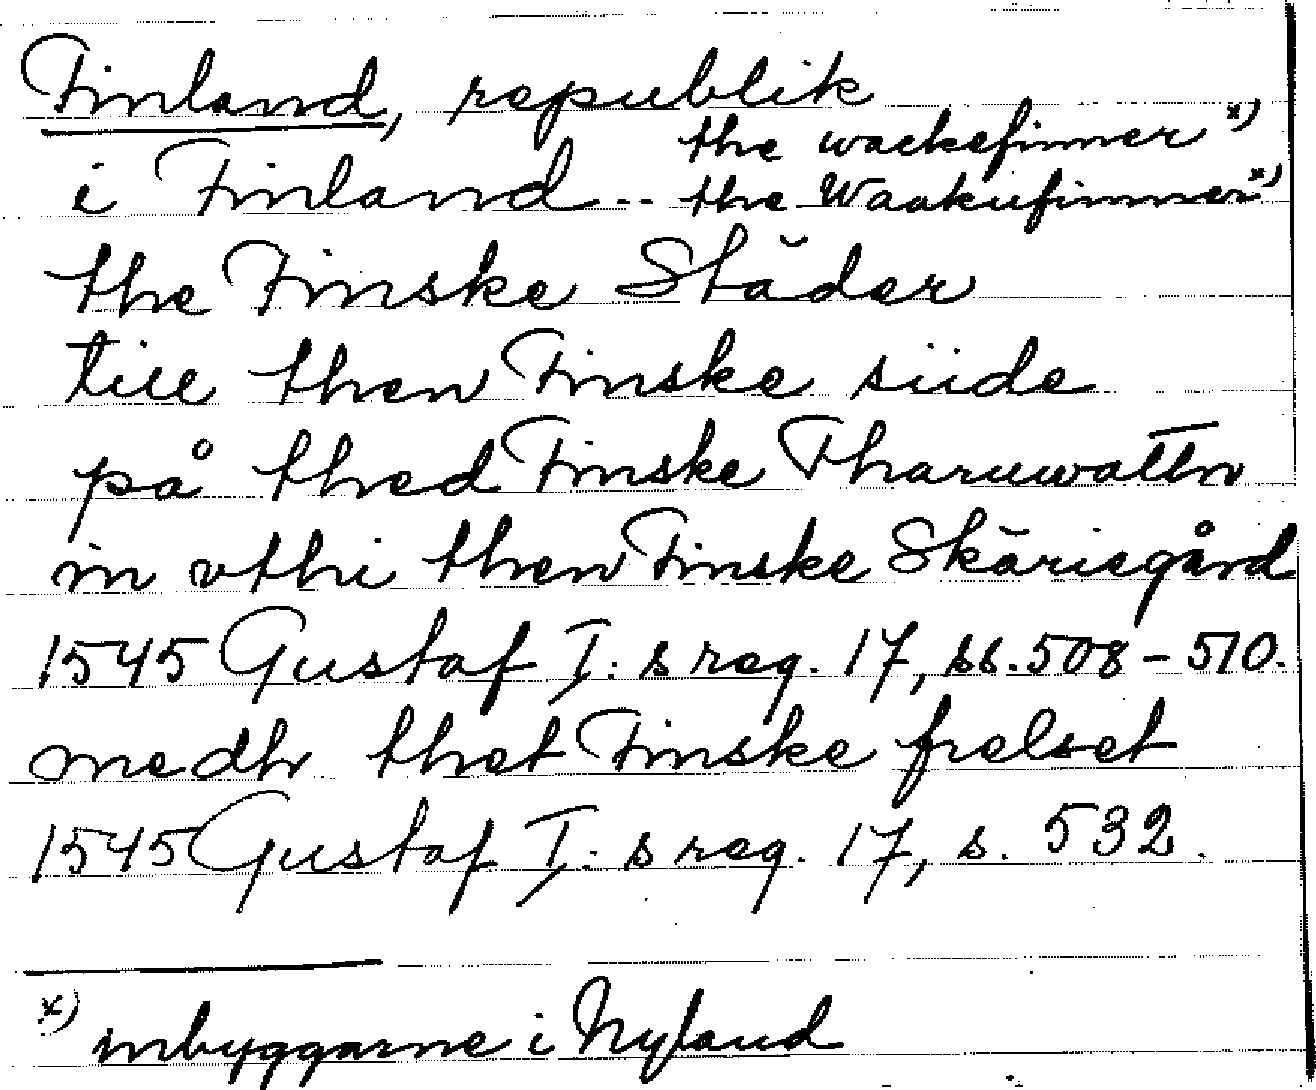 Finland, republik
the wackefinner x)
i Finland.. the Waakufinner x)
the Finske Städer
till then Finske siide
på thed Finske Tharuwattn
in vthi then Finske Skäriegård
1545 Gustaf I:s reg. 17, ss. 508-510.
medh thet Finske frelset
1545 Gustaf I:s reg. 17, s. 532.
x) inbyggarne i Nyland